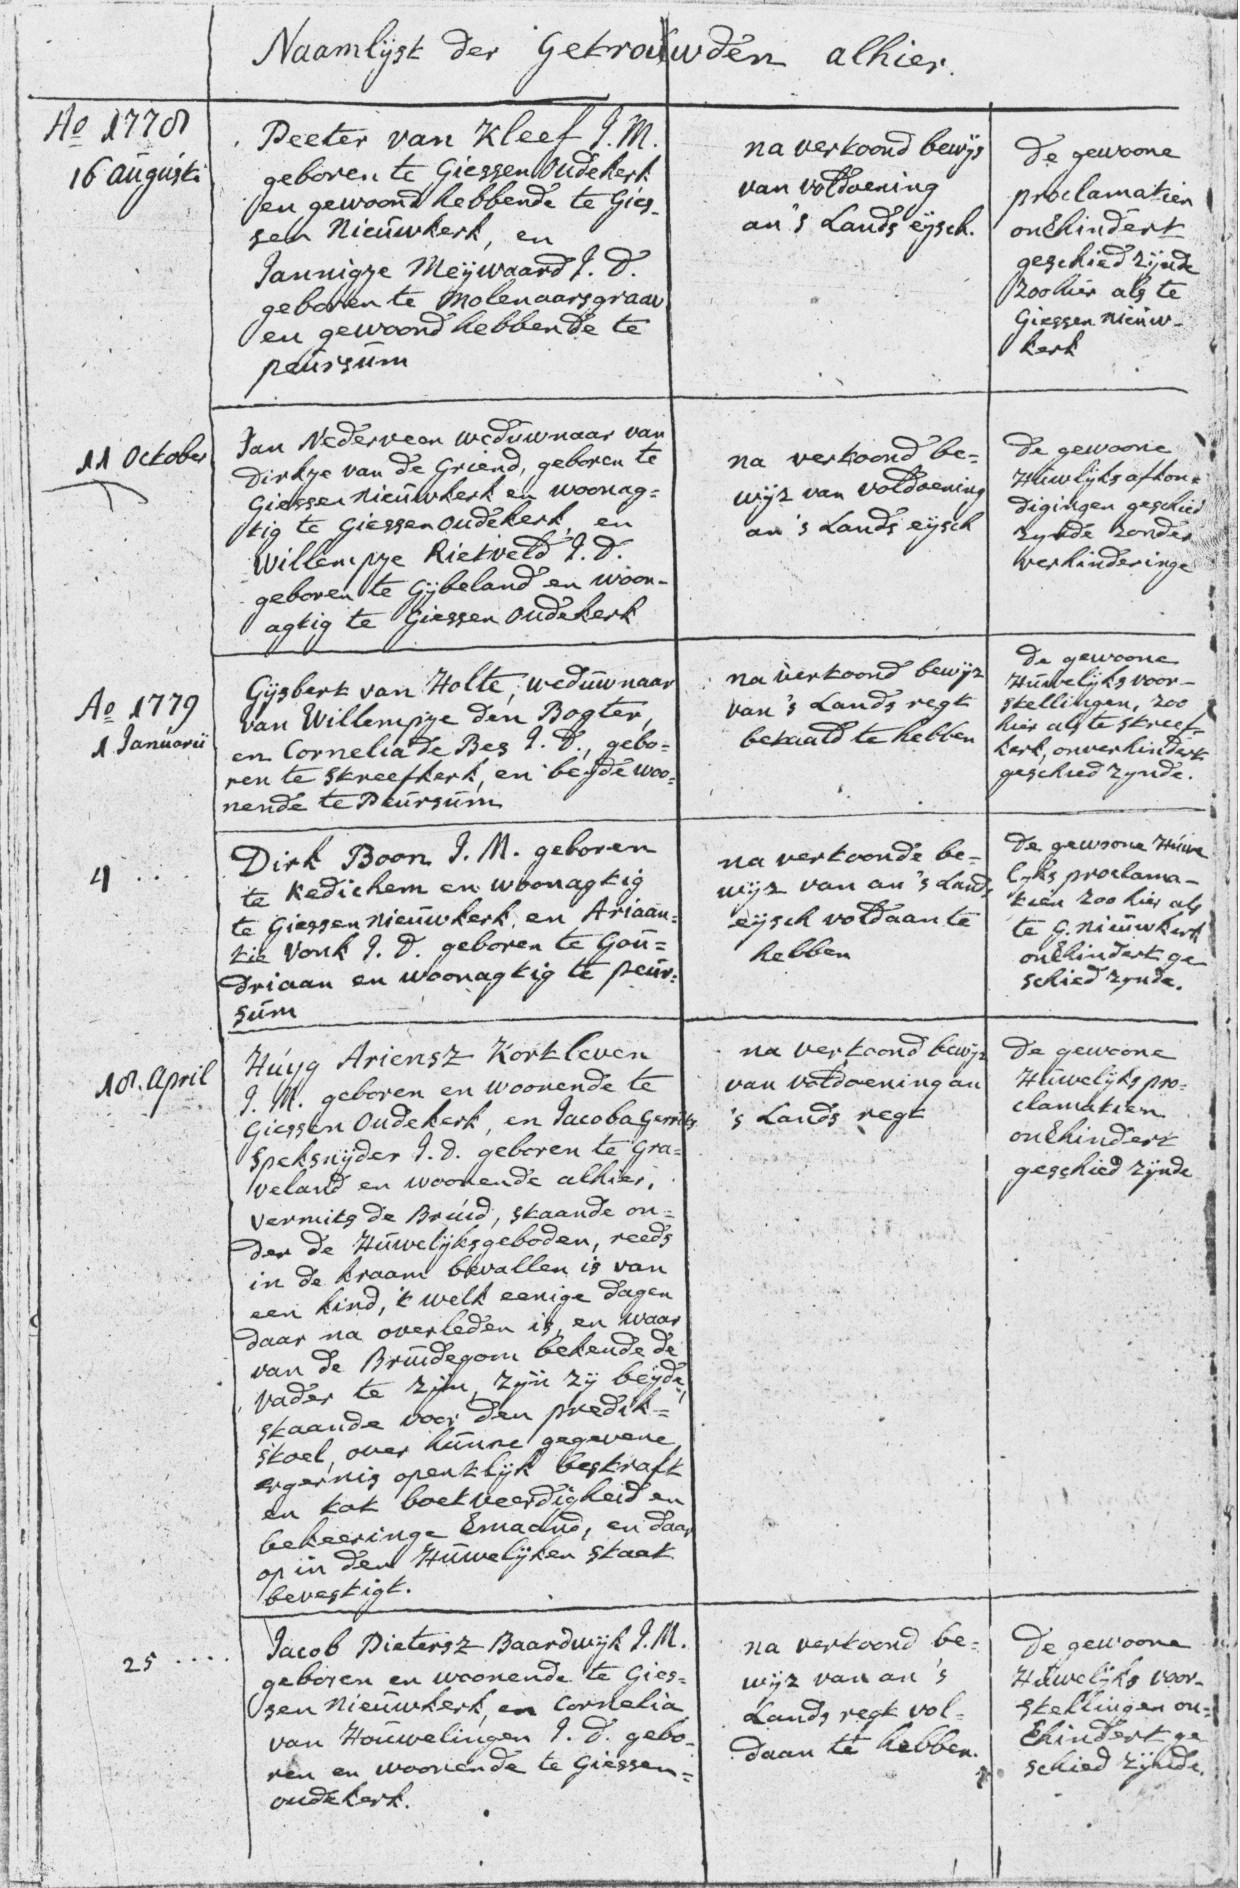 Naamlijst der Getrouwden alhier.
Ao 1778
16 augusti
Peeter van Kleef J. M.
geboren te Giessen Oudekerk
en gewoond hebbende te Gies-
sen Nieuwkerk, en
Jannigje Meijwaard J. D.
geboren te Molenaarsgraav
en gewoond hebbende te
peursum
na vertoond bewijs
van voldoening
an 's Lands eijsch.
de gewoone
proclamatien
onverhindert
geschied zijnde
zoo hier als te
Giessen nieuw-
kerk
11 October
Jan Nederveen weduwnaar van
Dirkje van de Griend, geboren te
Giessen nieuwkerk en woonag=
tig te Giessen oudekerk, en
Willempje Rietveld J. D.
geboren te Gijbeland en woon-
agtig te Giessen oudekerk
na vertoond be=
wijz van voldoening
an 's Lands eijsch
de gewoone
Huwlijks afkon=
digingen geschied
zynde zonder
verhinderinge
Ao 1779
1 Januarii
Gijsbert van Holte, weduwnaar
van Willempje den Bogter,
en Cornelia de Bes J. D., gebo=
ren te streefkerk, en beyde woo=
nende te Peursum
na vertoond bewijz
van 's Lands regt
betaald te hebben
de gewoone
Huwelijks voor-
stellingen, zoo
hier als te streef-
kerk, onverhindert
geschied zynde.
4 . .
Dirk Boon J. M. geboren
te Kedichem en woonagtig
te Giessen nieuwkerk, en Ariaan=
tie Vonk J. D. geboren te Gou=
driaan en woonagtig te peur=
sum
na vertoonde be=
wijz van an 's Lands
eijsch voldaan te
hebben
de gewoone Huwe
lyks proclama-
tien zoo hier als
te G. nieuwkerk
onverhindert ge
schied zynde.
18. April
Huyg Ariensz Kortleven
J. M. geboren en woonende te
Giessen Oudekerk, en Jacoba Gerrits
Speksnijder J. D. geboren te Gra=
veland en woonende alhier,
vermits de Bruid, staande on=
der de Huwelijksgeboden, reeds
in de kraam bevallen is van
een kind, 't welk eenige dagen
daar na overleden is, en waar
van de Bruidegom bekende de
vader te zijn, zijn zij beijde,
staande voor den predik=
stoel, over hunne gegevene
ergernis opentlijk bestraft
en tot boetveerdigheid en
bekeeringe vermaand, en daar
op in den Huwelijken staat
bevestigt.
na vertoond bewijz
van voldoening an
's Lands regt
de gewoone
Huwelijks pro=
clamatien
onverhindert
geschied zijnde
25 . . . .
Jacob Pietersz Baardwijk J. M.
geboren en woonende te Gies=
sen Nieuwkerk, en Cornelia
van Houwelingen J. D. gebo-
ren en woonende te Giessen=
oudekerk.
na vertoond be=
wijz van an 's
Lands regt vol=
daan te hebben.
de gewoone
Huwelijks voor-
stellingen on=
verhindert ge
schied zijnde.